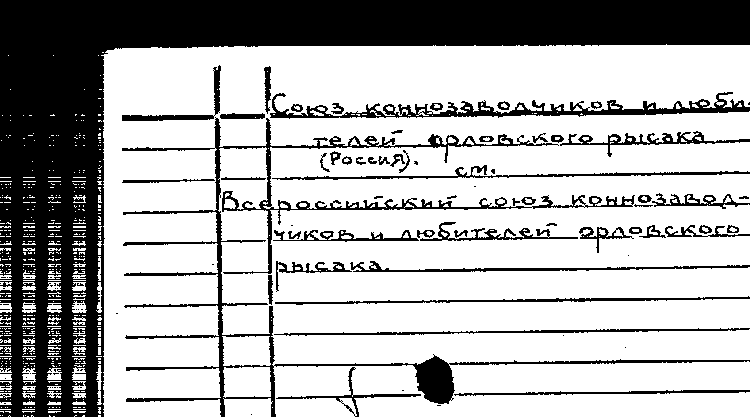 Союз коннозаводчиков и люби-
телей орловского рысака
(Россия).
см.
Всероссийский союз коннозавод-
чиков и любителей орловского
рысака.